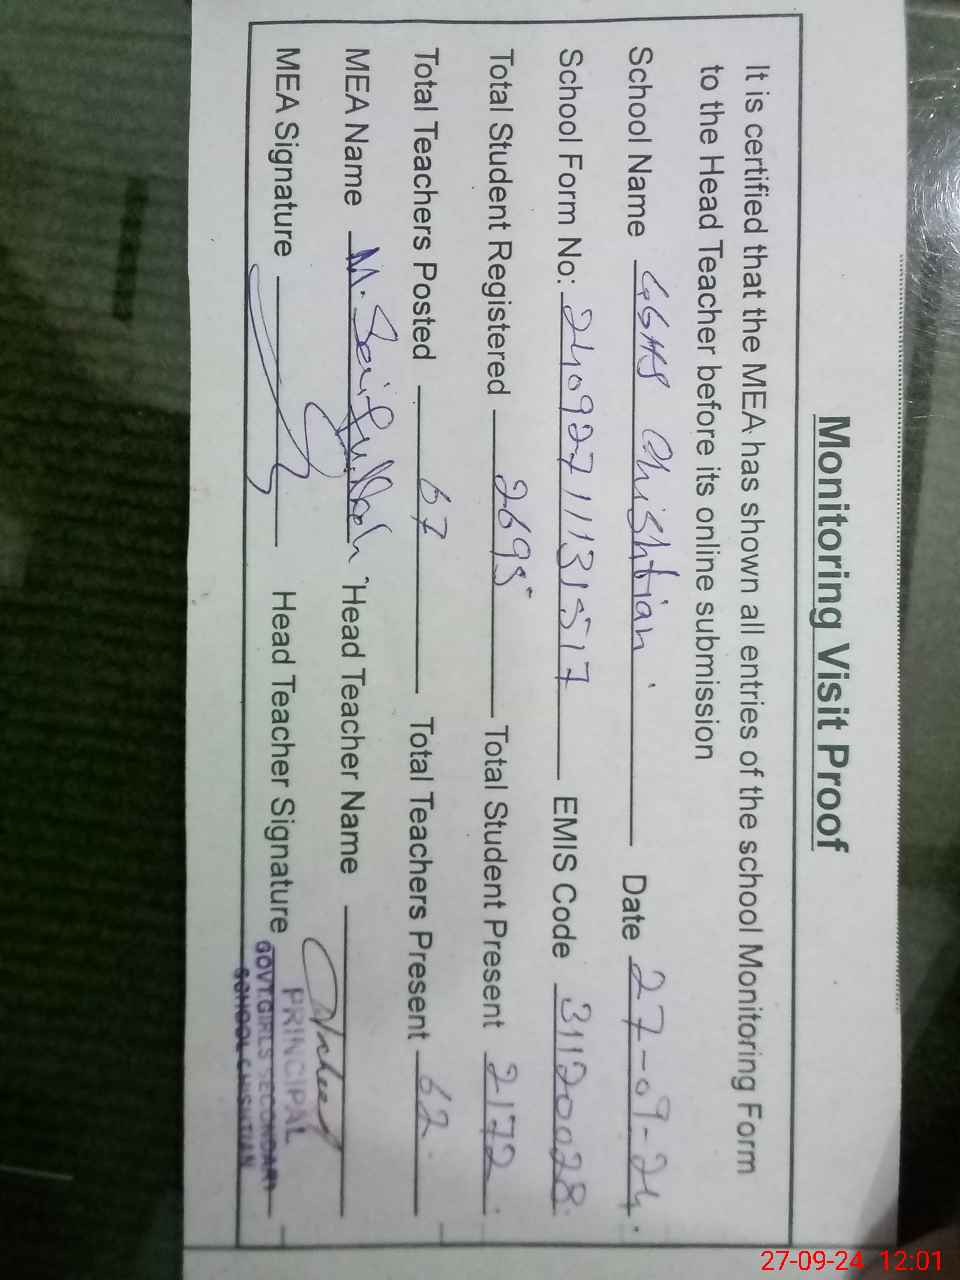 Monitoring Visit Proof
It is certified that the MEA has shown all entries of the school Monitoring Form
to the Head Teacher before its online submission
School Name GGHS Chishtian Date 27-09-24
School Form No: 2409271131517 EMIS Code 31120028
Total Student Registered 2695 Total Student Present 2172
Total Teachers Posted 67 Total Teachers Present 62
MEA Name M. Saifullah Head Teacher Name
MEA Signature Head Teacher Signature
PRINCIPAL
GOVT.GIRLS SECONDARY
SCHOOL CHISHTIAN
27-09-24 12:01